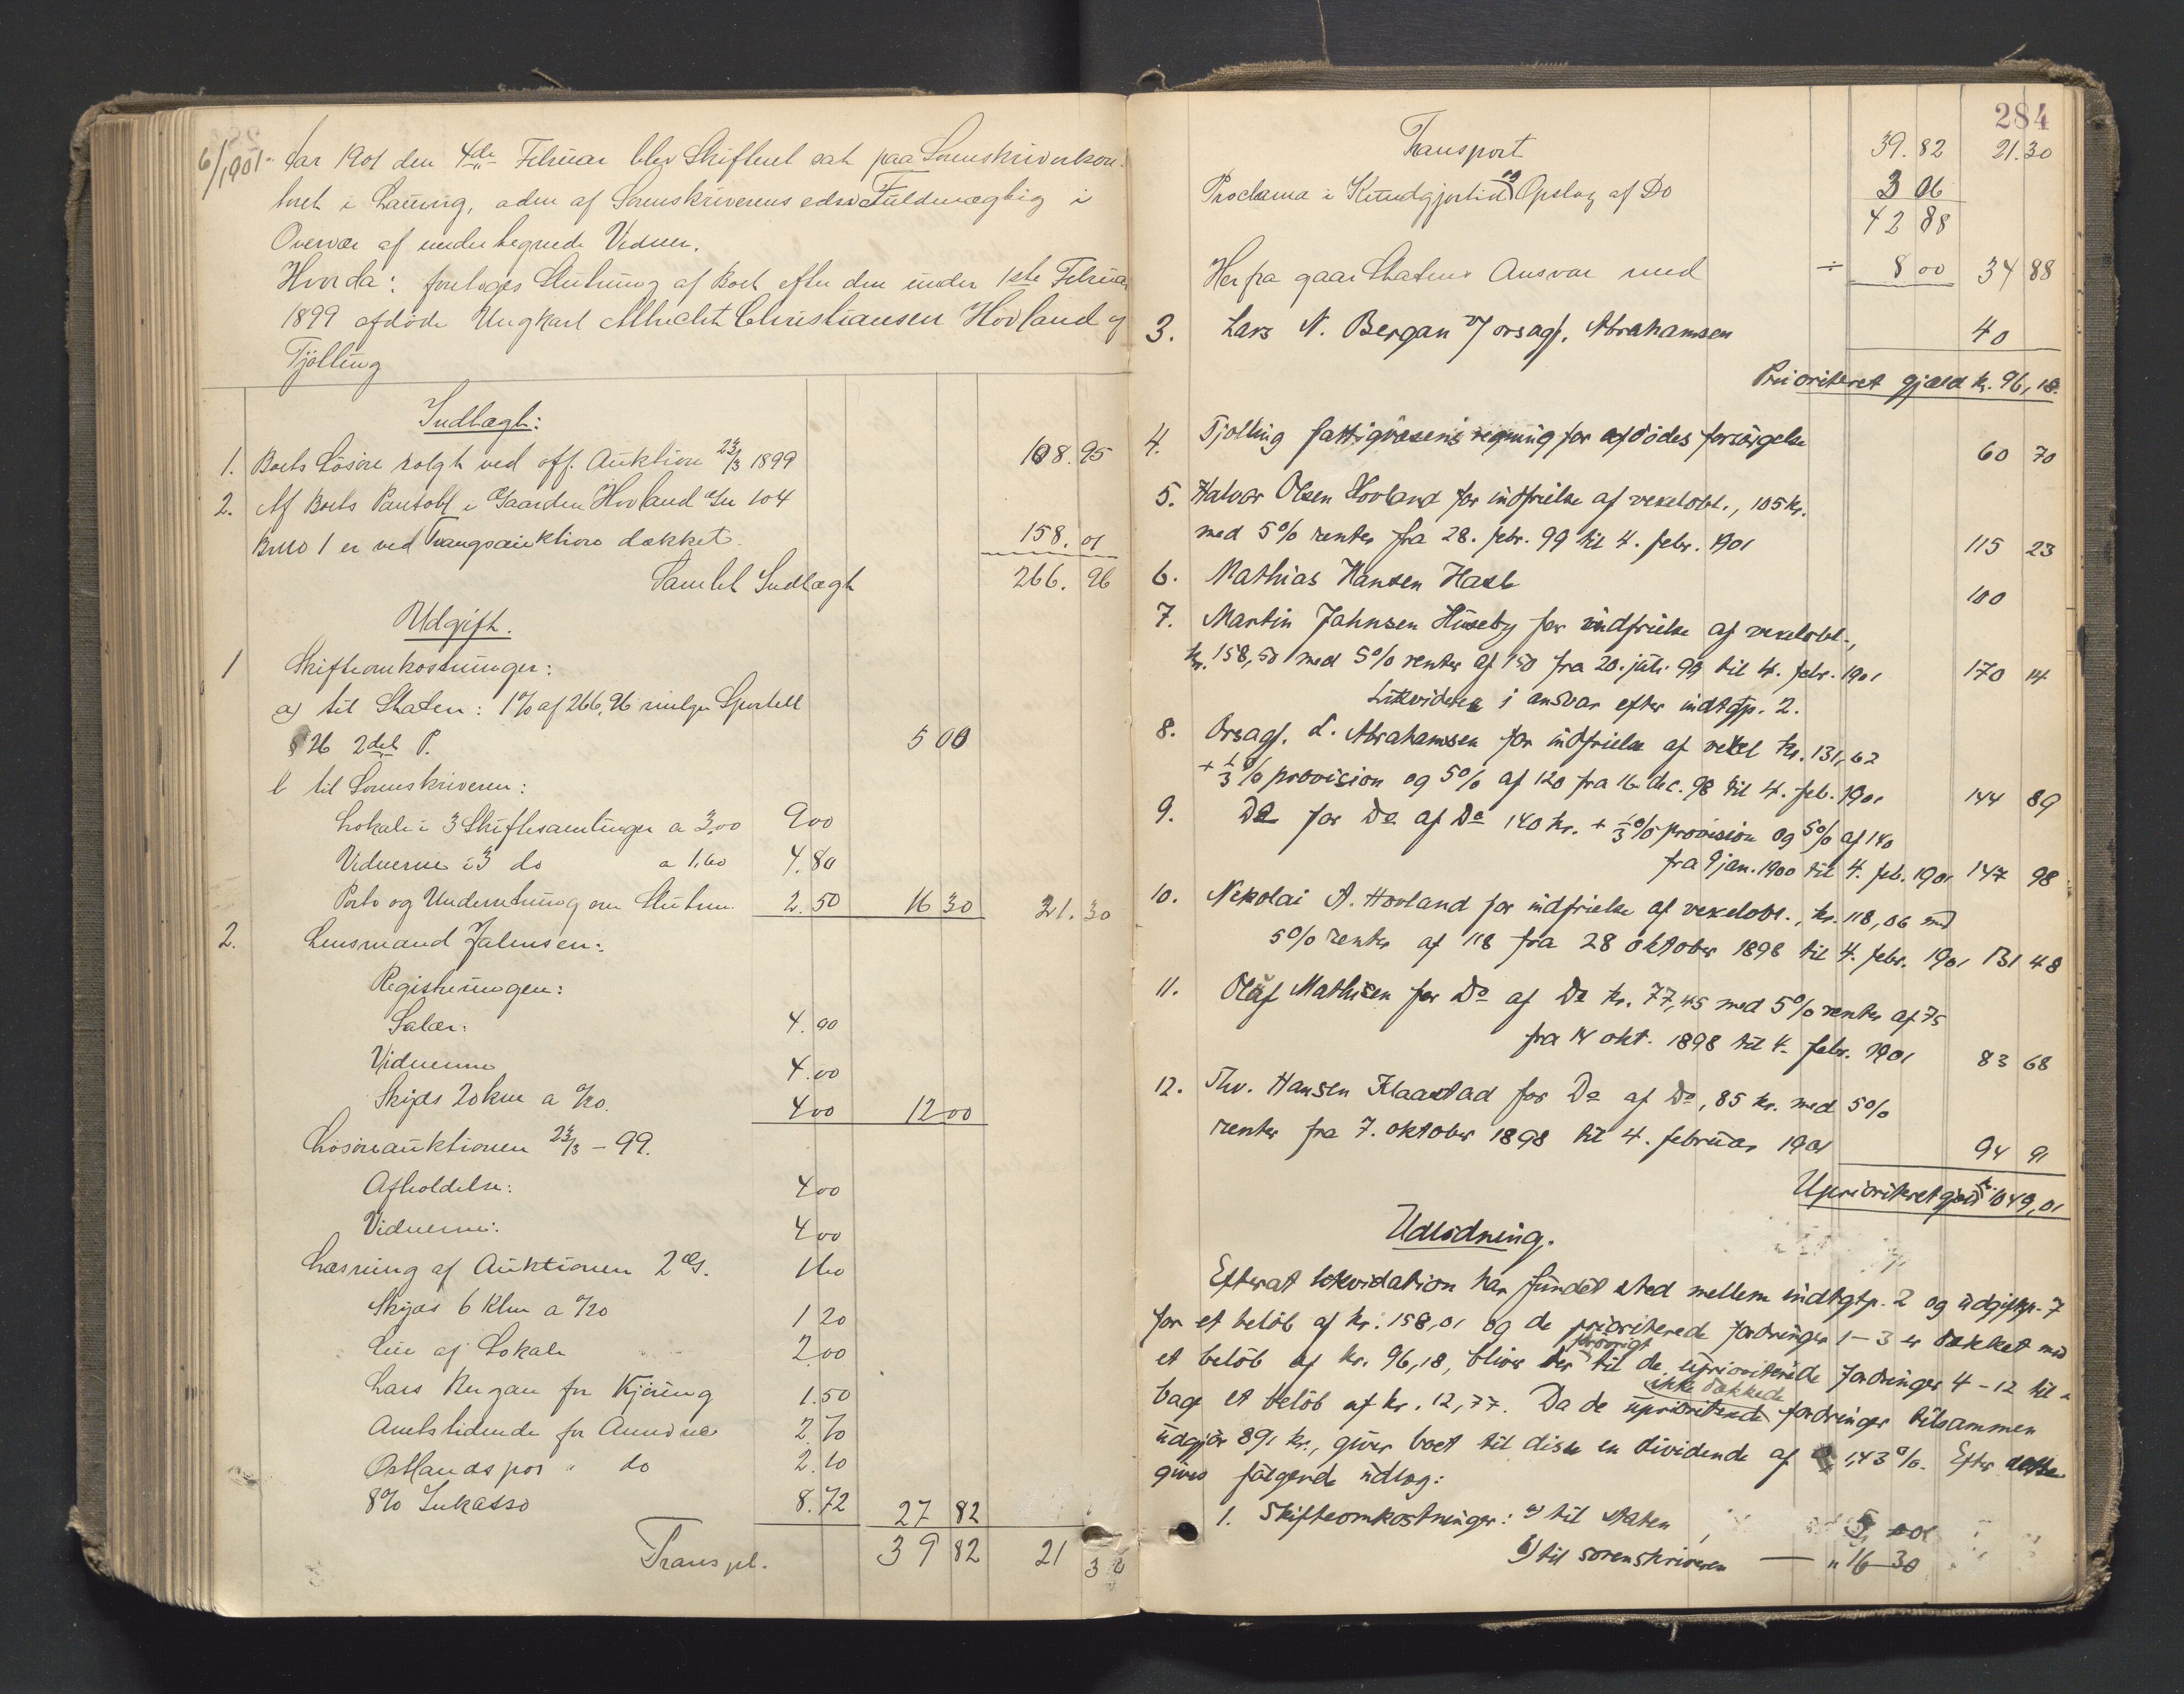 6/1901. Aar 1901 den 4de Februar blev Skifteret sat paa Sorenskriverkon-
toret i Laurvig, aden af Sorenskriverens edsv. Fuldmægtig i
Overvær af undertegnede Vidner.
Hvorda: foretoges Slutning af Boet efter den under 1ste Februar
1899 afdøde Ungkarl Albrecht Christiansen Hovland af
Tjølling
Indtægt:
1. Boets Løsøre solgt ved off. Auktion 23/3 1899 108.95
2. Af Boets Pantobl i Gaarden Hovland Gn 104
Bno 1 er ved Tvangsauktion dækket 158.01
Samlet Indtægt 266.96
Udgift.
1 Skifteomkostninger:
a) til Staten: 1% af 266,96 ifølge Sportell
§ 26 2det P. 5 00
b til Sorenskriveren:
Lokale i 3 Skiftesamlinger a 3,00 9 00
Vidnerne i 3 do a 1,60 4.80
Porto og Underretning om Slutn. 2.50 16 30 21.30
2. Lensmand Jahnsen:
Registreringen:
Salær: 4.00
Vidnerne 4.00
Skyds 20 km a 0/20. 4 00 12 00
Løsøreauktionen 23/3 - 99.
Afholdelse: 4 00
Vidnerne: 4 00
Læsning af Auktionen 2 G. 1 60
Skyds 6 Klm a 0/20 1 20
Leie af Lokale 2.00
Lars Bergan for Kjøring 1.50
Amtstidende for Annonce 2.70
Østlandspos " do 2.10
8% Inkasso 8.72 27 82
Transpt. 39 82 21 30
284
Transport 39.82 21.30
Proclama i Kundgjørtid og Opslag af Do 3 06
42 88
Herfra gaar Statens Ansvar med ÷ 8 00 34 88
3. Lars N. Bergan v/ orsagf. Abrahamsen 40
Prioriteret gjæld kr. 96,18.
4. Tjølling fattigvæsens regning for afdødes forsørgelse 60 70
5. Halvor Olsen Hovland for indfrielse af vexelobl., 105 kr.
med 5% renter fra 28. febr. 99 til 4. febr. 1901 115 23
6. Mathias Hansen Hasle 100
7. Martin Jahnsen Huseby for indfrielse af vexelobl.,
kr. 158,50 med 5% renter af 150 fra 20. juli 99 til 4. febr. 1901 170 14
Likvideres i ansvar efter indtgtp. 2.
8. Orsagf. L. Abrahamsen for indfrielse af vexel kr. 131,62
+ 1/3 % provision og 5% af 120 fra 16 dec. 98 til 4. feb. 1901 144 89
9. Do for Do af Do 140 kr. + 1/3 % provision og 5% af 140
fra 9 jan. 1900 til 4. feb. 1901 147 98
10. Nikolai A. Hovland for indfrielse af vexelobl., kr. 118,06 med
5% renter af 118 fra 28 oktober 1898 til 4. febr. 1901 131 48
11. Olaf Mathisen for Do af Do kr. 77,45 med 5% renter af 75
fra 14 okt. 1898 til 4. febr. 1901 83 68
12. Thv. Hansen Klaastad for Do af Do, 85 kr. med 5%
renter fra 7. oktober 1898 til 4. februar 1901 94 91
Uprioriteret gjæld kr. 1049,01
Udlodning.
Efterat likvidation har fundet sted mellem indtgtp. 2 og udgiftsp. 7
for et beløb af kr. 158,01 og de prioriterede fordringer 1-3 er dækket med
et beløb af kr. 96,18, bliver der forøvrigt til de uprioriterede fordringer 4-12 til-
bage et beløb af kr. 12,77. Da de uprioriterede ikke dækkede fordringer tilsammen
udgjør 891 kr., giver boet til disse en dividende af 1,43 %. Efter dette
gives følgende udlæg:
1. Skifteomkostninger: a) til staten 5 00
b) til sorenskriveren — " 16 30